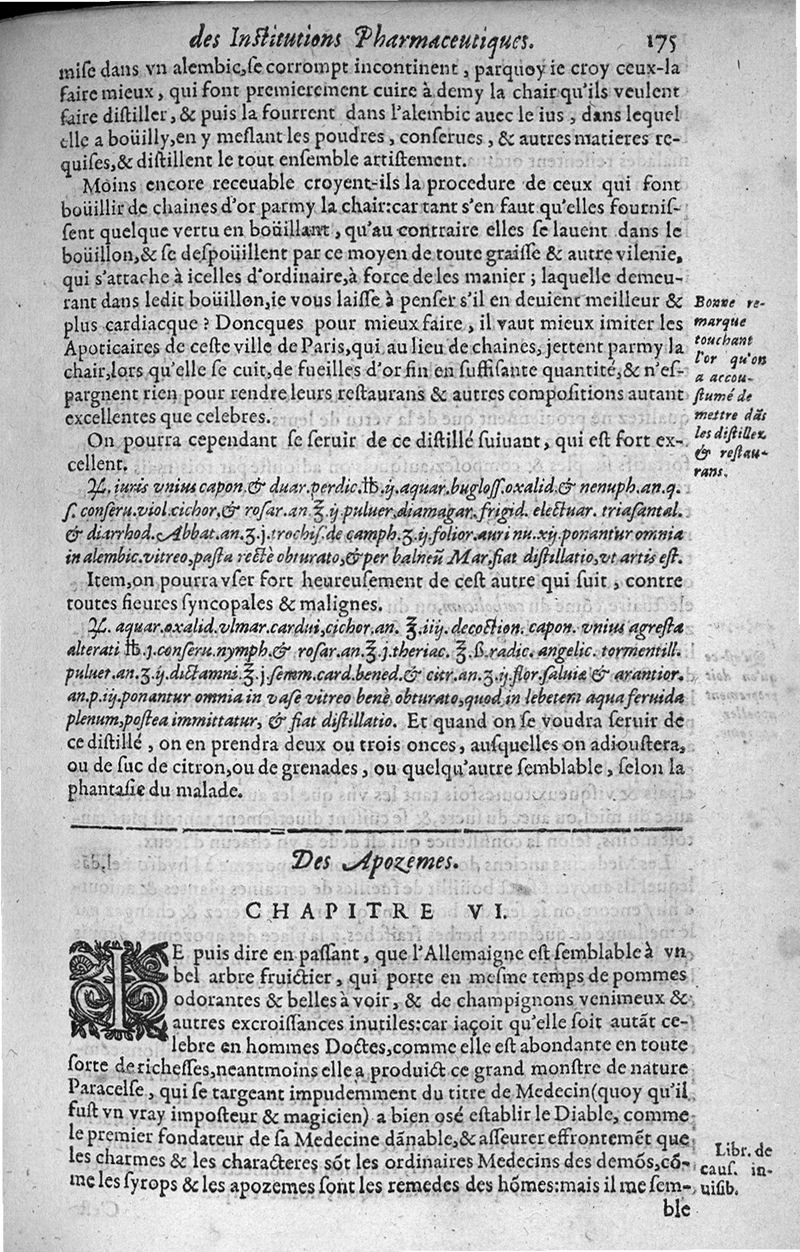 des Inſtitutions Pharmaceutiques. 175
miſe dans vn alembic, ſe corrompt incontinent, parquoy ie croy ceux-la
faire mieux, qui font premierement cuire à demy la chair qu'ils veulent
faire diſtiller, & puis la fourrent dans l'alembic auec le ius, dans lequel
elle a boüilly, en y meſlant les poudres, conſerues, & autres matieres re-
quiſes, & diſtillent le tout enſemble artiſtement.
Moins encore receuable croyent-ils la procedure de ceux qui font
boüillir de chaines d'or parmy la chair: car tant s'en faut qu'elles fourniſ-
ſent quelque vertu en boüillant, qu'au contraire elles ſe lauent dans le
boüillon, & ſe deſpoüillent par ce moyen de toute graiſſe & autre vilenie,
qui s'attache à icelles d'ordinaire, à force de les manier; laquelle demeu-
rant dans ledit boüillon, ie vous laiſſe à penſer s'il en deuient meilleur &
plus cardiacque? Doncques pour mieux faire, il vaut mieux imiter les
Apoticaires de ceſte ville de Paris, qui au lieu de chaines, jettent parmy la
chair, lors qu'elle ſe cuit, de fueilles d'or fin en ſuffiſante quantité, & n'eſ-
pargnent rien pour rendre leurs reſtaurans & autres compoſitions autant
excellentes que celebres.
Bonne re-
marque
touchant
l'or qu'on
a accou-
ſtumé de
mettre dãs
les diſtillez
& reſtau-
rans.
On pourra cependant ſe ſeruir de ce diſtillé ſuiuant, qui eſt fort ex-
cellent.
℞. iuris vnius capon. & duar. perdic. ℔. ij. aquar. bugloſſ. oxalid. & nenuph. an. q.
ſ. conſeru. viol. cichor. & roſar. an. ℥. ij. puluer. diamagar. frigid. electuar. triaſantal.
& diarrhod. Abbat. an. ʒ. j. trochiſ. de camph. ʒ. ij. folior. auri nu. xij. ponantur omnia
in alembic. vitreo, paſta rectè obturato, & per balneũ Mar. fiat diſtillatio, vt artis eſt.
Item, on pourra vſer fort heureuſement de ceſt autre qui ſuit, contre
toutes fieures ſyncopales & malignes.
℞. aquar. oxalid. vlmar. cardui, cichor. an. ℥. iiij. decoction. capon. vnius agreſta
alterati ℔. j. conſeru. nymph. & roſar. an. ℥. j. theriac. ℥. ß. radic. angelic. tormentill.
puluer. an. ʒ. ij. dictamni. ℥. j ſemin. card. bened. & citr. an. ʒ. ij. flor. ſaluiæ & arantior.
an. p. iij. ponantur omnia in vaſe vitreo benè obturato, quod in lebetem aqua feruida
plenum, poſtea immittatur, & fiat diſtillatio. Et quand on ſe voudra ſeruir de
ce diſtillé, on en prendra deux ou trois onces, auſquelles on adiouſtera,
ou de ſuc de citron, ou de grenades, ou quelqu'autre ſemblable, ſelon la
phantaſie du malade.
Des Apozemes.
CHAPITRE VI.
IE puis dire en paſſant, que l'Allemaigne eſt ſemblable à vn
bel arbre fruictier, qui porte en meſme temps de pommes
odorantes & belles à voir, & de champignons venimeux &
autres excroiſſances inutiles: car iaçoit qu'elle ſoit autãt ce-
lebre en hommes Doctes, comme elle eſt abondante en toute
ſorte de richeſſes, neantmoins elle a produict ce grand monſtre de nature
Paracelſe, qui ſe targeant impudemment du titre de Medecin (quoy qu'il
fuſt vn vray impoſteur & magicien) a bien oſé eſtablir le Diable, comme
le premier fondateur de ſa Medecine dãnable, & aſſeurer effrontemẽt que
les charmes & les characteres sõt les ordinaires Medecins des demõs, cõ-
me les ſyrops & les apozemes ſont les remedes des hõmes: mais il me ſem-
Libr. de
cauſ. in-
uiſib.
ble